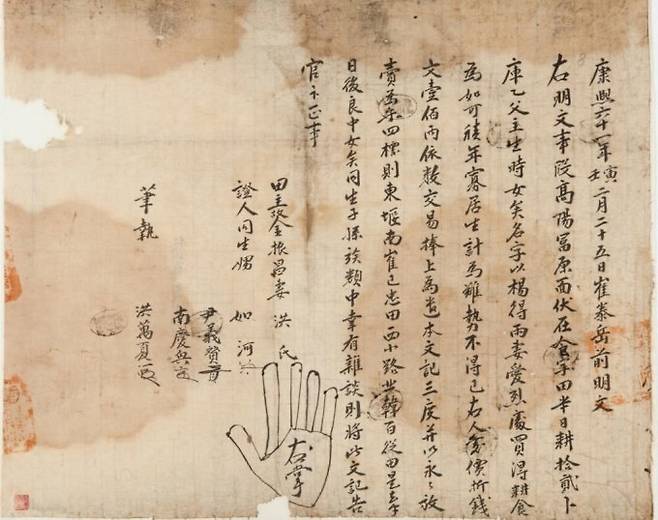 康熙六十一年壬寅二月二十五日崔泰岳前明文
右明文事段高陽冨原面伏在 字田半日耕拾貳卜
庫乙父主生時女矣名字以楊得雨妻愛烈處買得耕食
為如可積年寡居生計為難勢不得已右人 價折錢
文壹佰兩依數交易捧上為遣本文記三度并以永々放
賣為乎 四標則東堰南崔已忠田西小路北韓百從田是去乎
日後良中女矣同生子孫族類中幸有雜談則將此文記告
官卞正事
田主 金振昌妻 洪氏
右掌
證人同生娚 如河
尹義贊
南慶興
筆執 洪萬夏